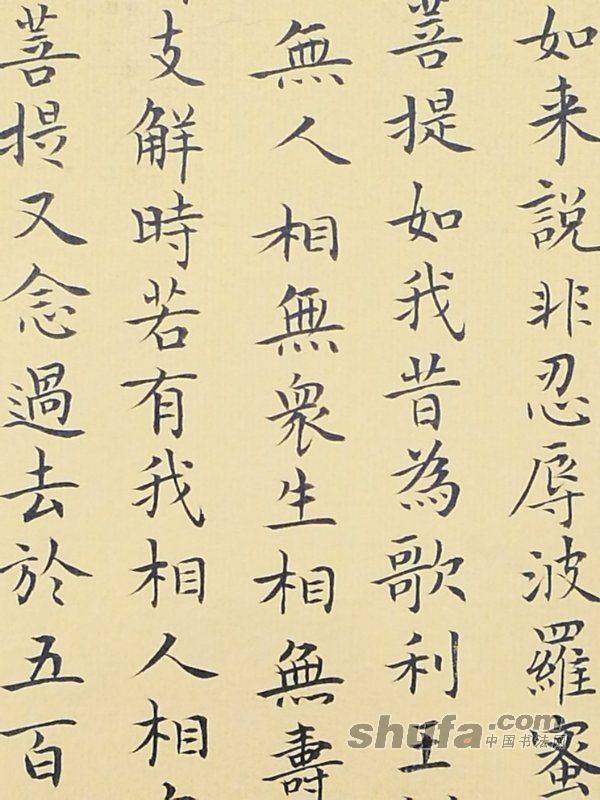 如来說非忍辱波羅蜜
菩提如我昔為歌利王
無人相無衆生相無壽
支解時若有我相人相
菩提又念過去於五百
shufa.com
中国书法网